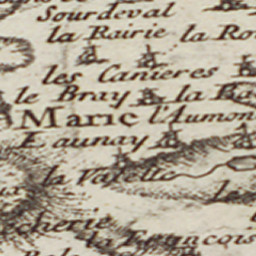 Sourdeval
la Rairie la Ro
les Canieres
le Bray la Ba
Marie l'Aumon
Eaunay
la Valette
Le
cherie
la François